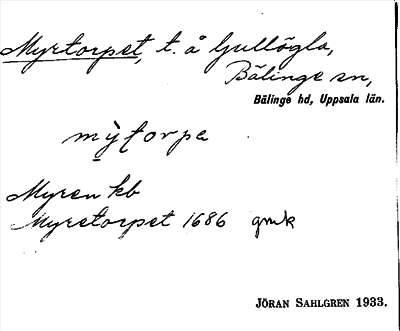 Myrtorpet, t. å Gullögla,
Bälinge sn,
Bälinge hd, Uppsala län.
mỳṭorpe
Myren kb
Myretorpet 1686 gmk
JÖRAN SAHLGREN 1933.